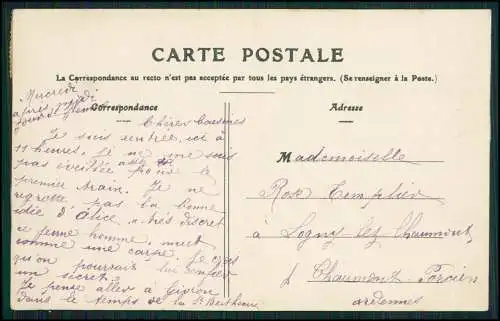 CARTE POSTALE
La Correspondance au recto n'est pas acceptée par tous les pays étrangers. (Se renseigner à la Poste.)
Correspondance
Adresse
Mercredi
après midi
Chères Cousines
Je suis rentrée ici à
11 heures. Je ne me suis
pas éveillée assez pour le
premier train. Je ne
regrette pas la bonne
idée d'Alice. très discret
ce jeune homme, muet
comme une carpe. Je crois
qu'on pourrait lui confier
un secret.
Je pense aller à Givron
dans le temps de la
Mademoiselle
Rose Templier
à Logny lez Chaumont
p Chaumont-Porcien
Ardennes